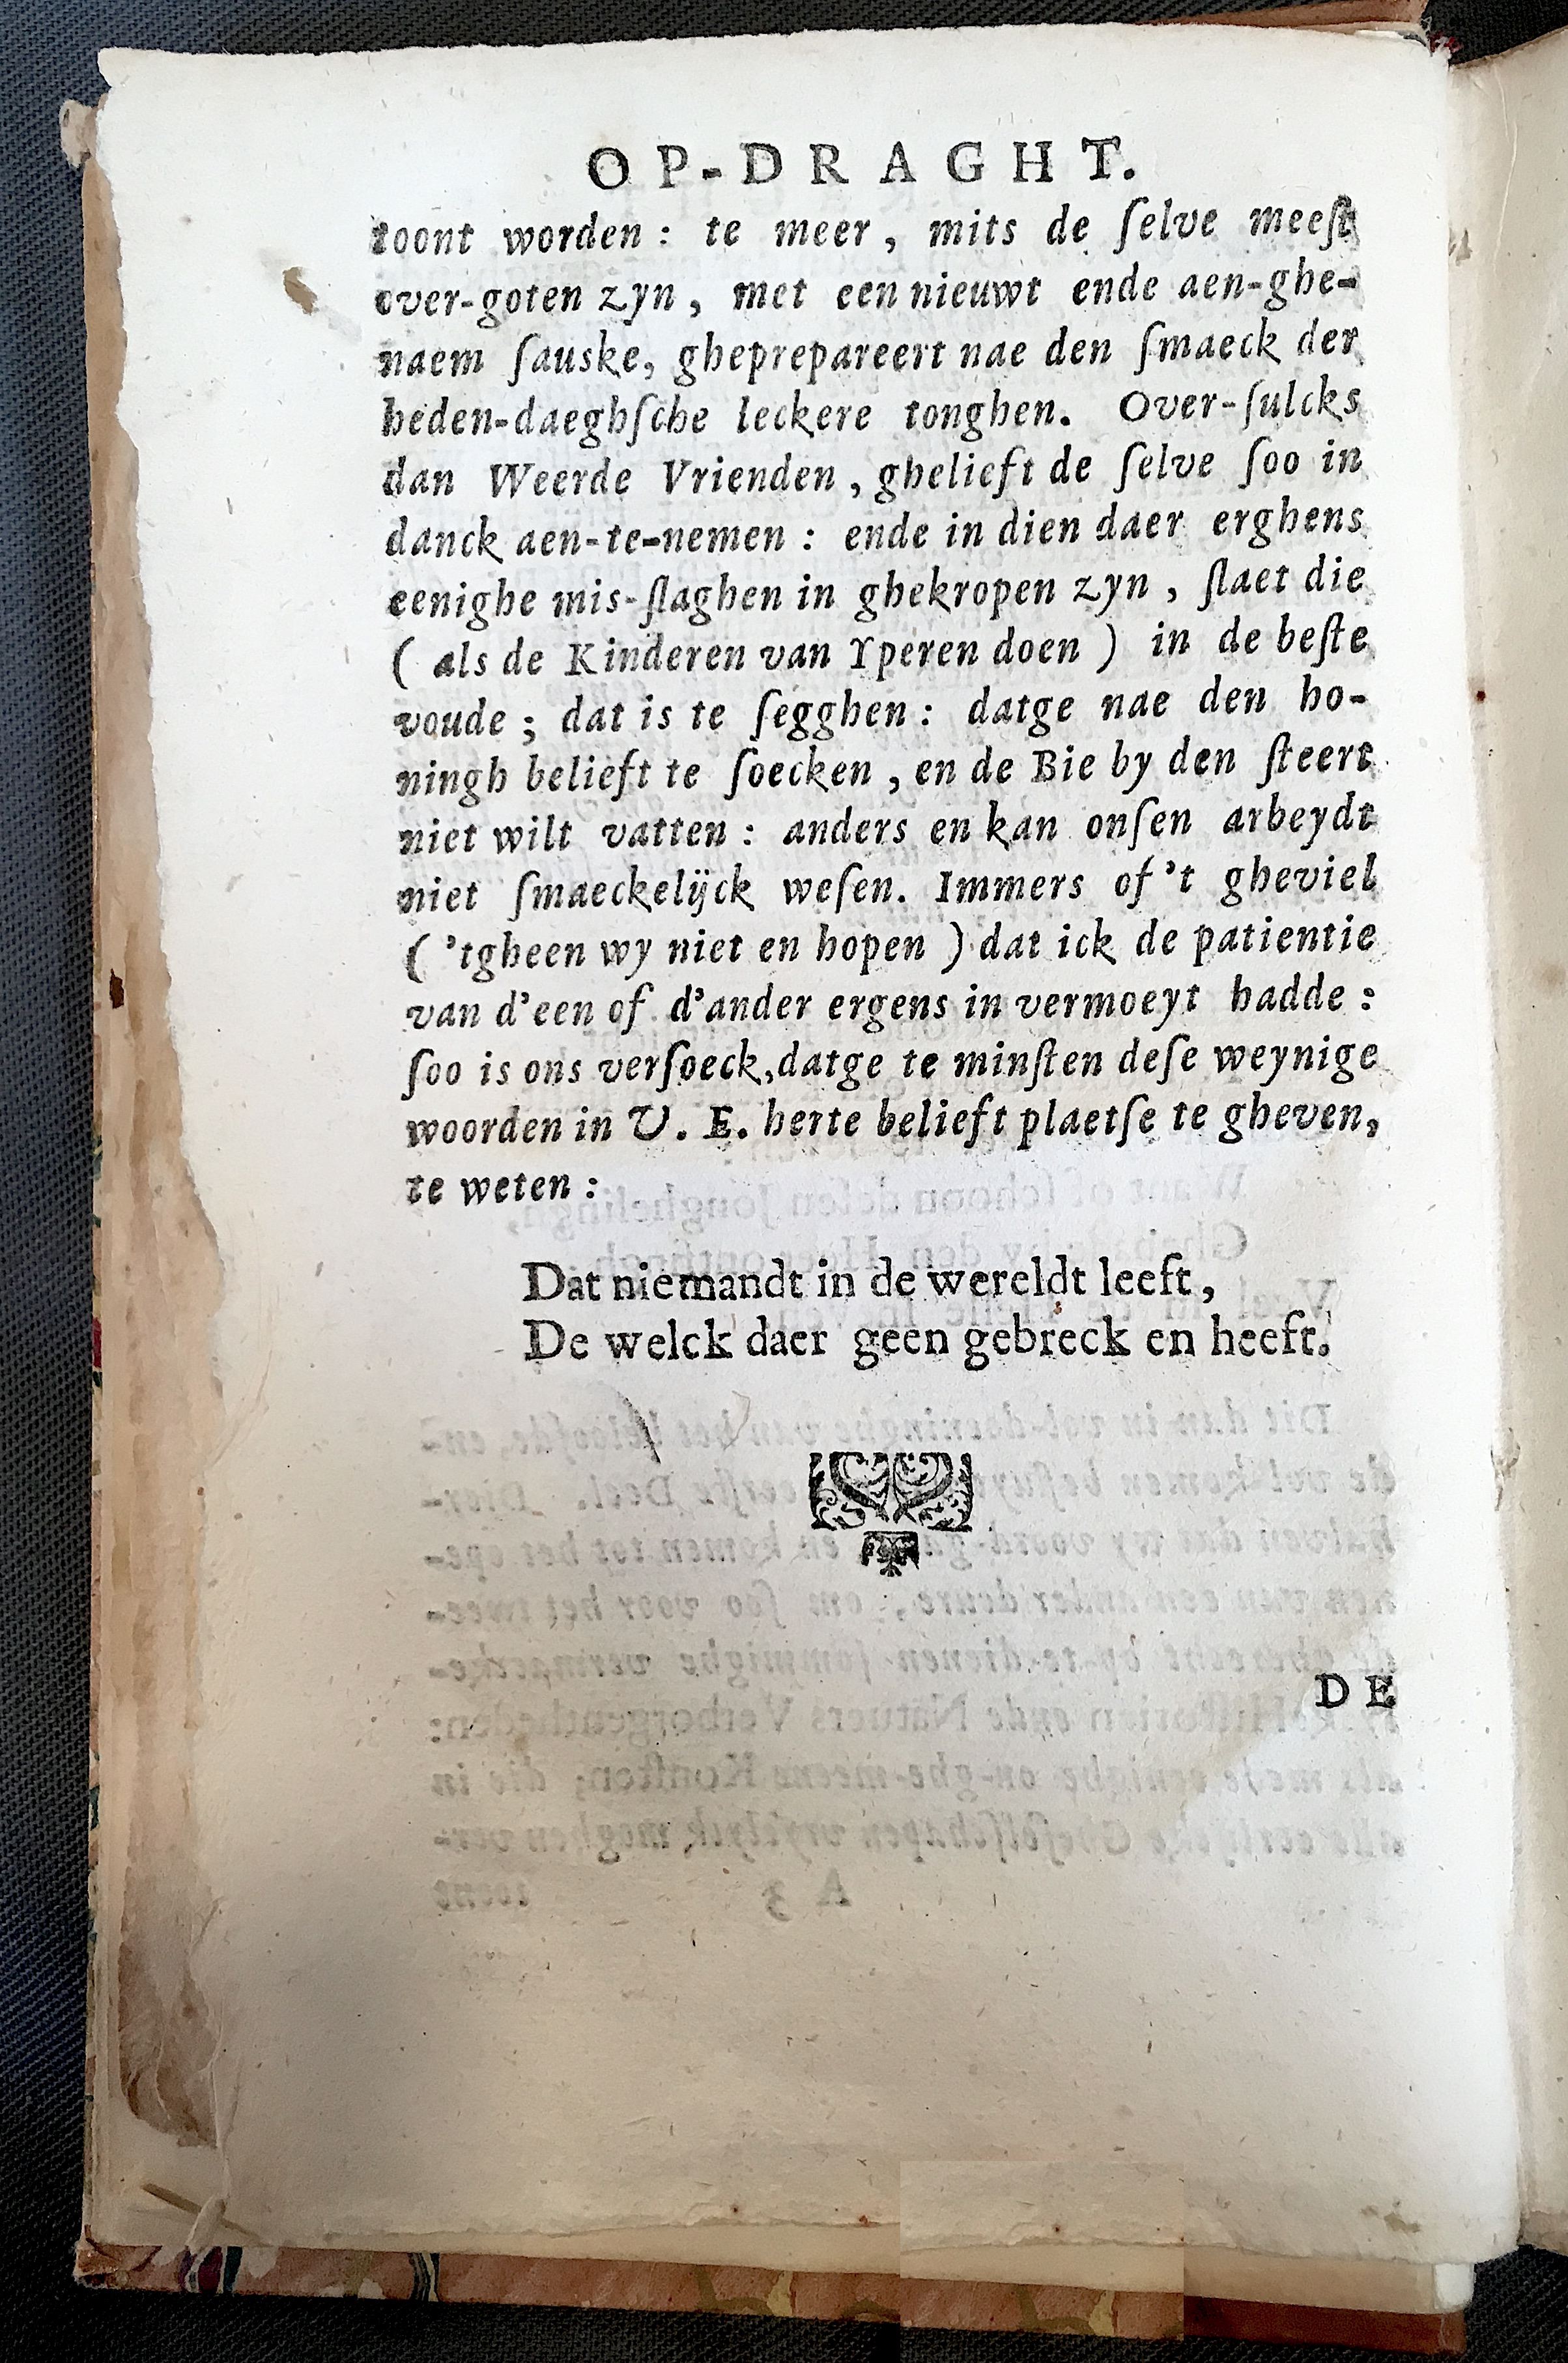 OP-DRAGHT.
toont worden: te meer, mits de ſelve meeſt
over-goten zyn, met een nieuwt ende aen-ghe-
naem ſauske, gheprepareert nae den ſmaeck der
heden-daeghſche leckere tonghen. Over-ſulcks
dan Weerde Vrienden, ghelieft de ſelve ſoo in
danck aen-te-nemen: ende in dien daer erghens
eenighe mis-ſlaghen in ghekropen zyn, ſlaet die
( als de Kinderen van Yperen doen ) in de beſte
voude; dat is te ſegghen: datge nae den ho-
ningh belieft te ſoecken, en de Bie by den ſteert
niet wilt vatten: anders en kan onſen arbeydt
niet ſmaeckelijck weſen. Immers of 't gheviel
( 'tgheen wy niet en hopen ) dat ick de patientie
van d'een of d'ander ergens in vermoeyt hadde:
ſoo is ons verſoeck, datge te minſten deſe weynige
woorden in U. E. herte belieft plaetſe te gheven,
te weten:
Dat niemandt in de wereldt leeft,
De welck daer geen gebreck en heeft.
DE